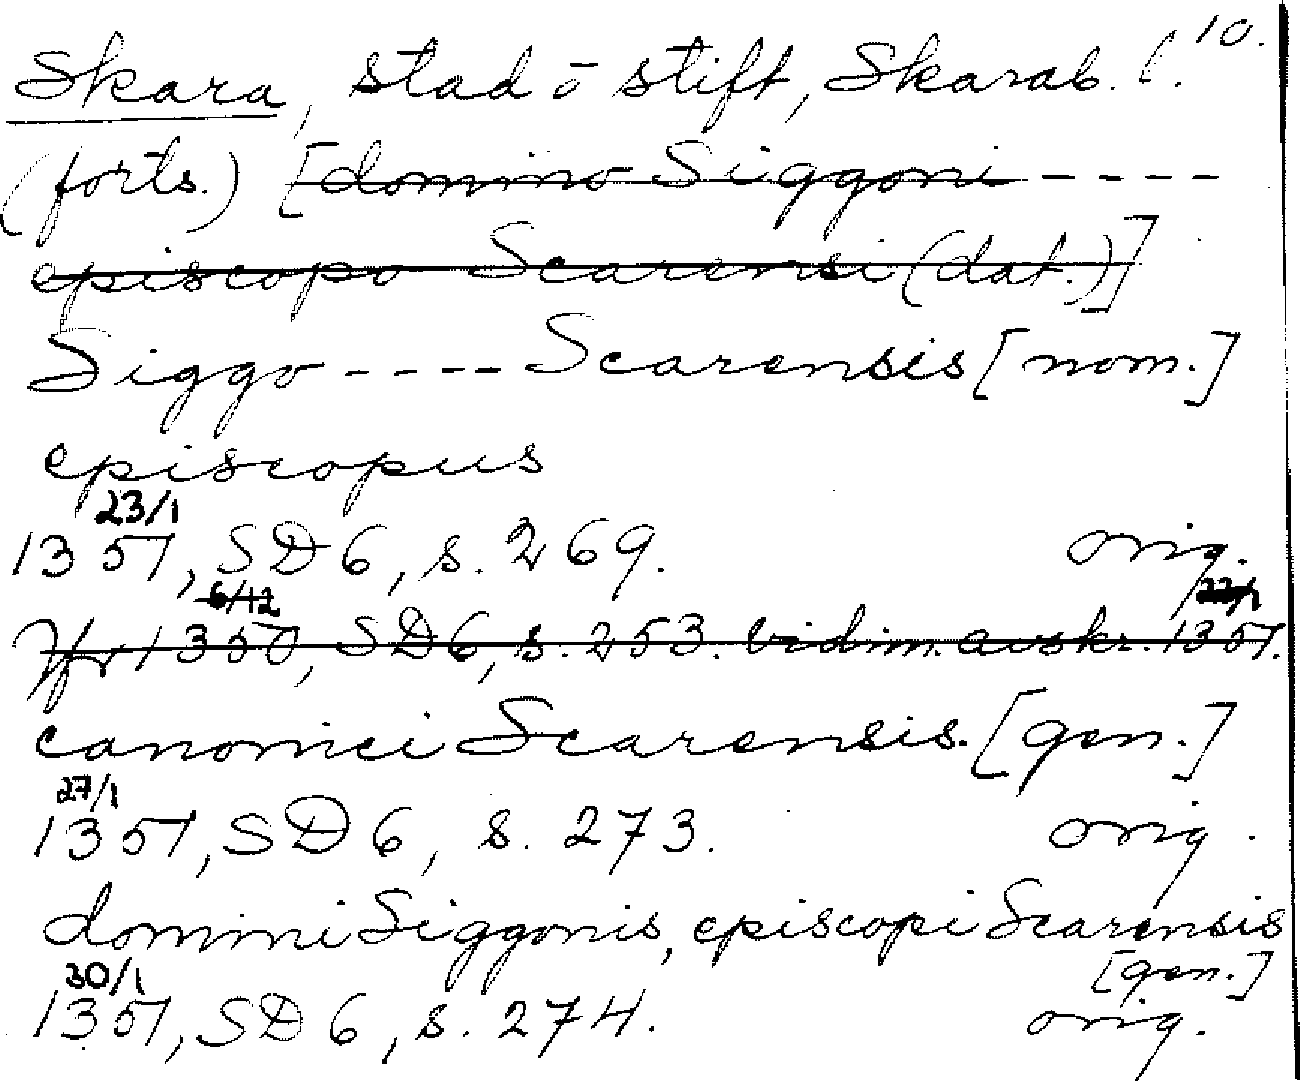 10.
Skara, stad ō stift, Skarab. l.
(forts.) [domino Siggoni ----
episcopo Scarensi (dat.)]
Siggo ---- Scarensis [nom.]
episcopus
23/1
1351, SD 6, s. 269. orig.
6/12 22/1
Jfr 1350, SD 6, s. 253. vidim. avskr. 1351.
canonici Scarensis. [gen.]
27/1
1351, SD 6, s. 273. orig.
domini Siggonis, episcopi Scarensis
[gen.]
30/1
1351, SD 6, s. 274. orig.